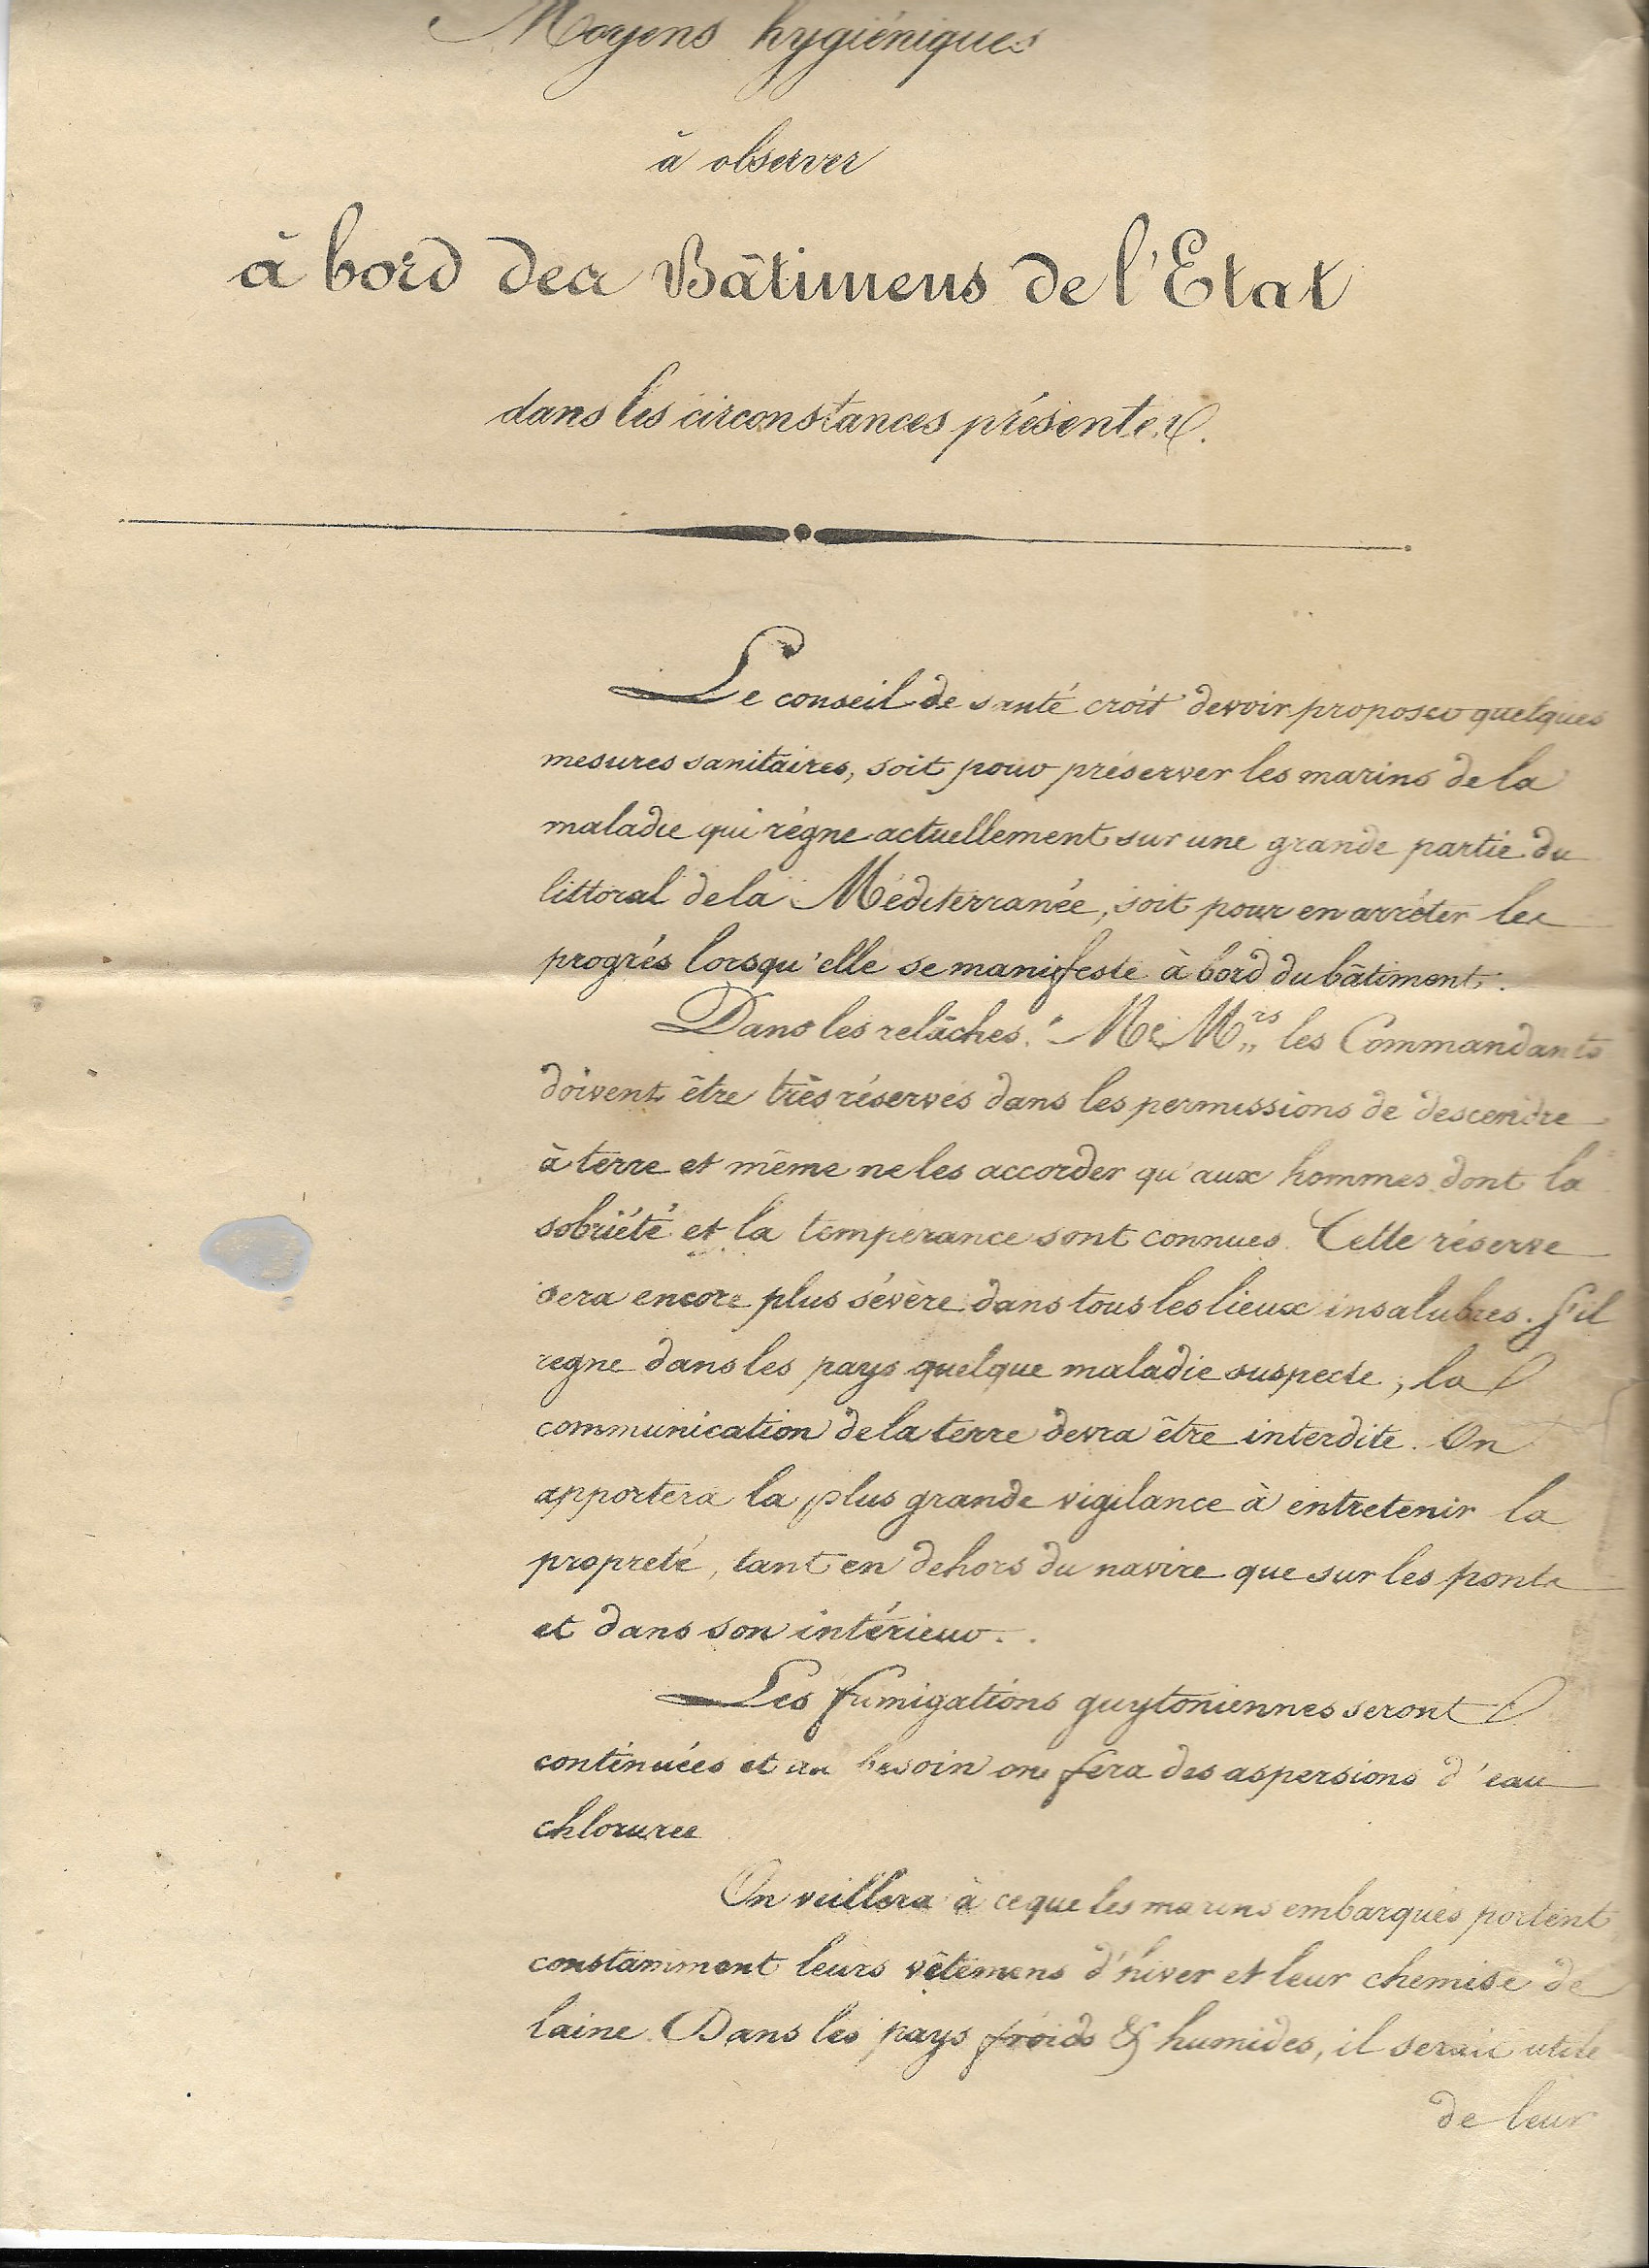 Moyens hygiéniques
à observer
à bord des Bâtimens de l'Etat
dans les circonstances présentes.
Le conseil de santé croit devoir proposer quelques
mesures sanitaires, soit pour préserver les marins de la
maladie qui règne actuellement sur une grande partie du
littoral de la Méditerranée, soit pour en arrêter les
progrès lorsqu'elle se manifeste à bord du bâtiment.
Dans les relâches. M M.rs les Commandants
doivent être très réservés dans les permissions de descendre
à terre et même ne les accorder qu'aux hommes dont la
sobriété et la tempérance sont connues. Cette réserve
sera encore plus sévère dans tous les lieux insalubres. S'il
regne dans les pays quelque maladie suspecte, la
communication de la terre devra être interdite. On
apportera la plus grande vigilance à entretenir la
propreté, tant en dehors du navire que sur les ponts
et dans son intérieur.
Les fumigations guytoniennes seront
continuées et au besoin on fera des aspersions d'eau
chlorurée
On veillera à ce que les marins embarqués portent
constamment leurs vêtemens d'hiver et leur chemise de
laine. Dans les pays froids & humides, il serait utile
de leur